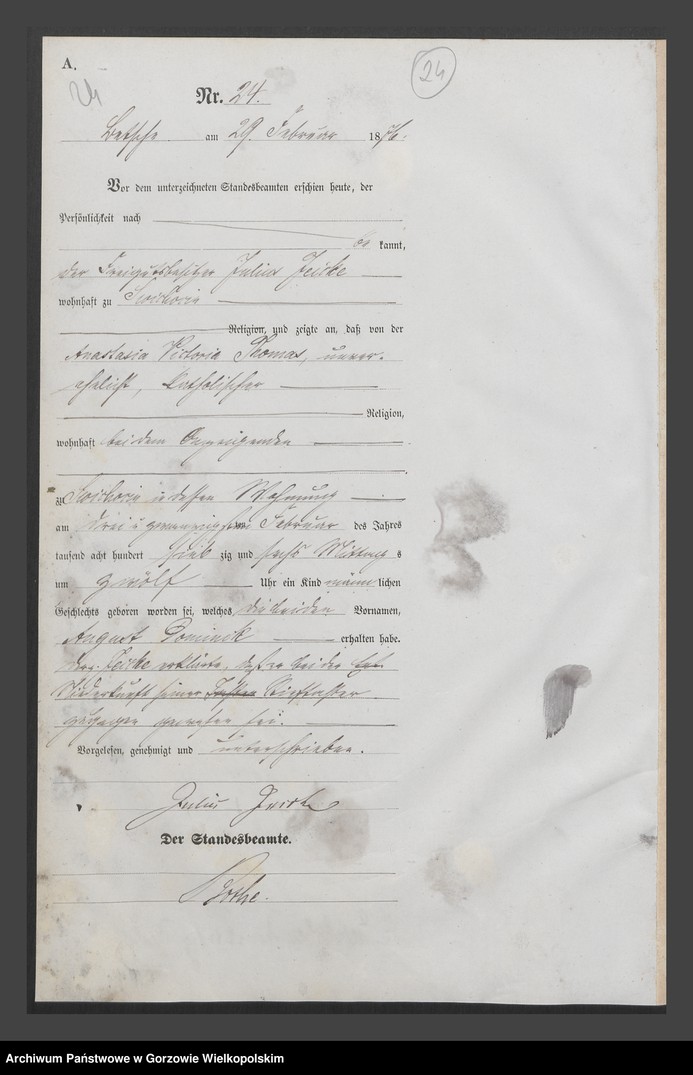 A.
24
24
Nr. 24.
Betsche am 29. Februar 1876.
Vor dem unterzeichneten Standesbeamten erschien heute, der
Persönlichkeit nach
be kannt,
der Freigutsbesitzer Julius
wohnhaft zu
Religion, und zeigte an, daß von der
Anastasia Victoria Thomas, unver-
ehelicht, katholischer
Religion,
wohnhaft bei dem Anzeigenden
zu in dessen Wohnung
am drei u zwanzigsten Februar des Jahres
tausend acht hundert sieb zig und sechs Mittag s
um zwölf Uhr ein Kind männ lichen
Geschlechts geboren worden sei, welches die beiden Vornamen,
August Dominik erhalten habe.
Der erklärte, daß er bei der
Niederkunft seiner
zugegen gewesen sei.
Vorgelesen, genehmigt und unterschrieben.
Julius
Der Standesbeamte.
Bothe.
Archiwum Państwowe w Gorzowie Wielkopolskim